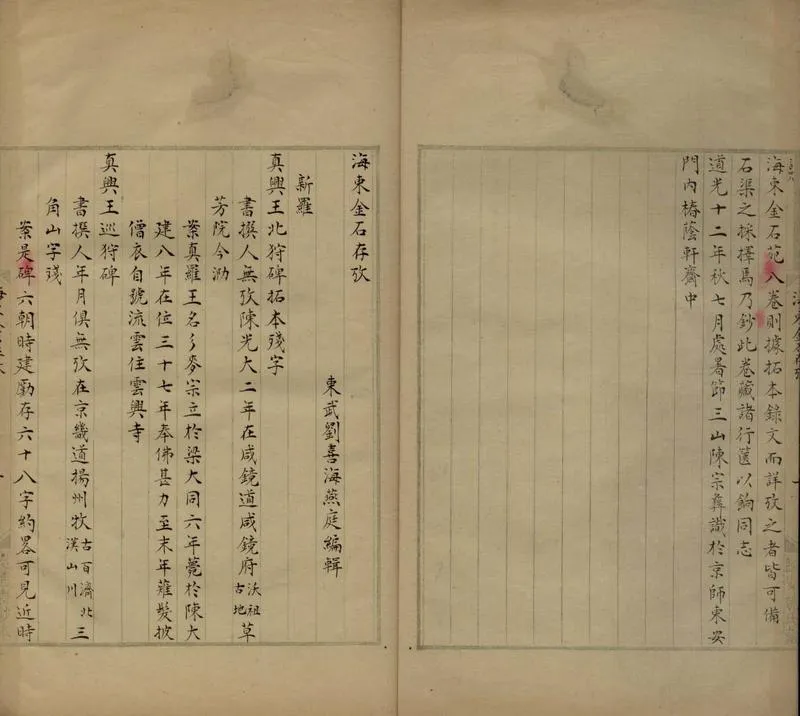 海東金石苑八卷則據拓本錄文而詳攷之者皆可備
石渠之採擇焉乃鈔此卷藏諸行篋以餉同志
道光十二年秋七月處暑節三山陳宗彝識於京師東安
門內椿蔭軒齋中
海東金石存攷
東武劉喜海燕庭編輯
新羅
真興王北狩碑拓本殘字
書撰人無攷陳光大二年在咸鏡道咸鏡府沃祖古地草
芳院今泐
案真羅王名彡麥宗立於梁大同六年薨於陳大
建八年在位三十七年奉佛甚力至末年薙髮披
僧衣自號流雲住雲興寺
真興王巡狩碑
書撰人年月俱無攷在京畿道揚州牧古百濟北漢山川三
角山字殘
案是碑六朝時建勵存六十八字約畧可見近時